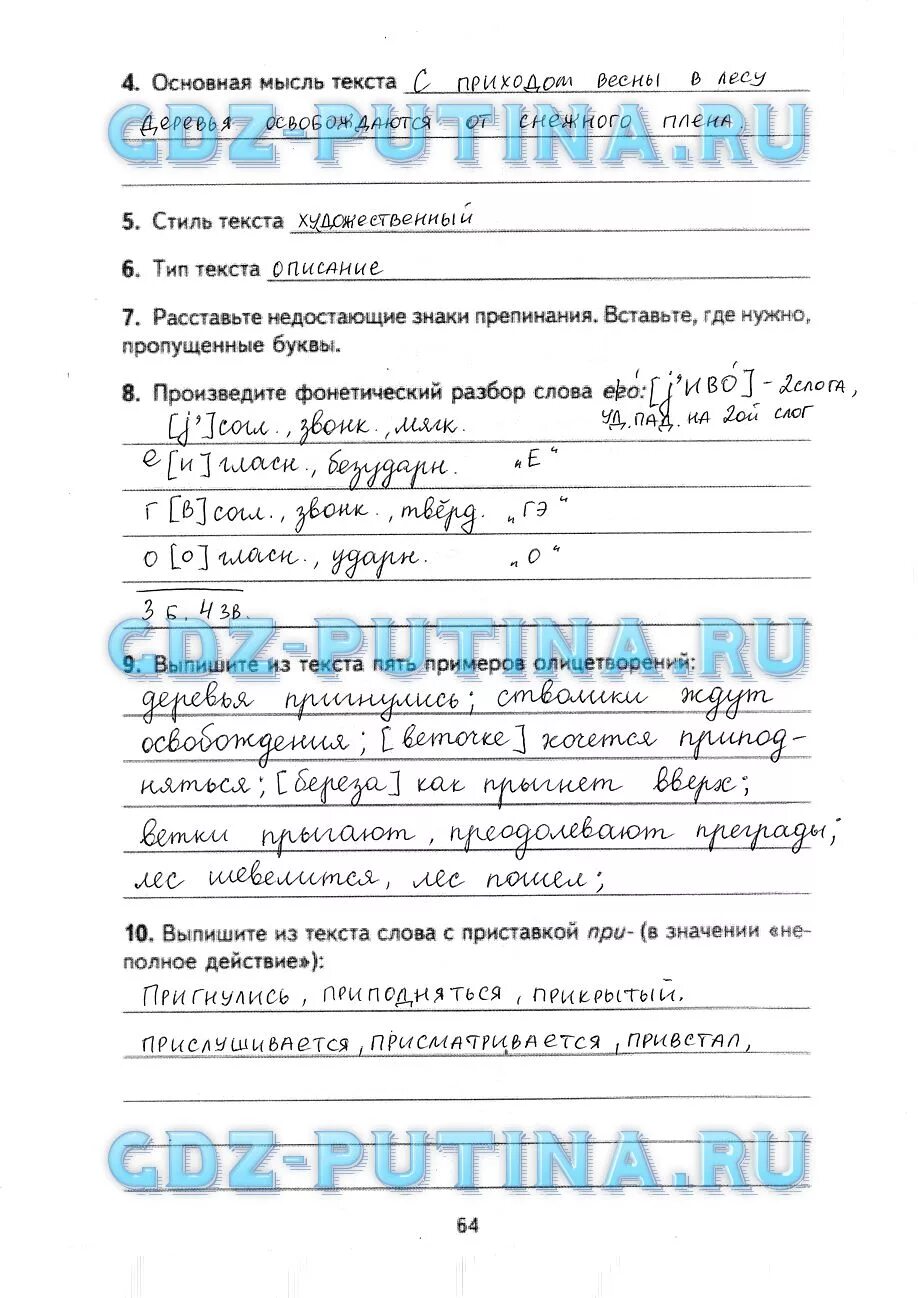 4. Основная мысль текста С приходом весны в лесу
деревья освобождаются от снежного плена.
GDZ-PUTINA.RU
5. Стиль текста художественный
6. Тип текста описание
7. Расставьте недостающие знаки препинания. Вставьте, где нужно,
пропущенные буквы.
8. Произведите фонетический разбор слова его: [j'ИВО́] - 2 слога,
уд. пад. на 2ой слог
[j'] согл., звонк., мягк.
е [и] гласн., безударн. „Е“
г [в] согл., звонк., твёрд. „гэ“
о [о] гласн., ударн. „О“
3 б, 4 зв.
GDZ-PUTINA.RU
9. Выпишите из текста пять примеров олицетворений:
деревья пригнулись; стволики ждут
освобождения; [веточке] хочется припод-
няться; [береза] как прыгнет вверх;
ветки прыгают, преодолевают преграды;
лес шевелится, лес пошел;
10. Выпишите из текста слова с приставкой при- (в значении «не-
полное действие»):
Пригнулись, приподняться, прикрытый.
прислушивается, присматривается, привстал,
GDZ-PUTINA.RU
64